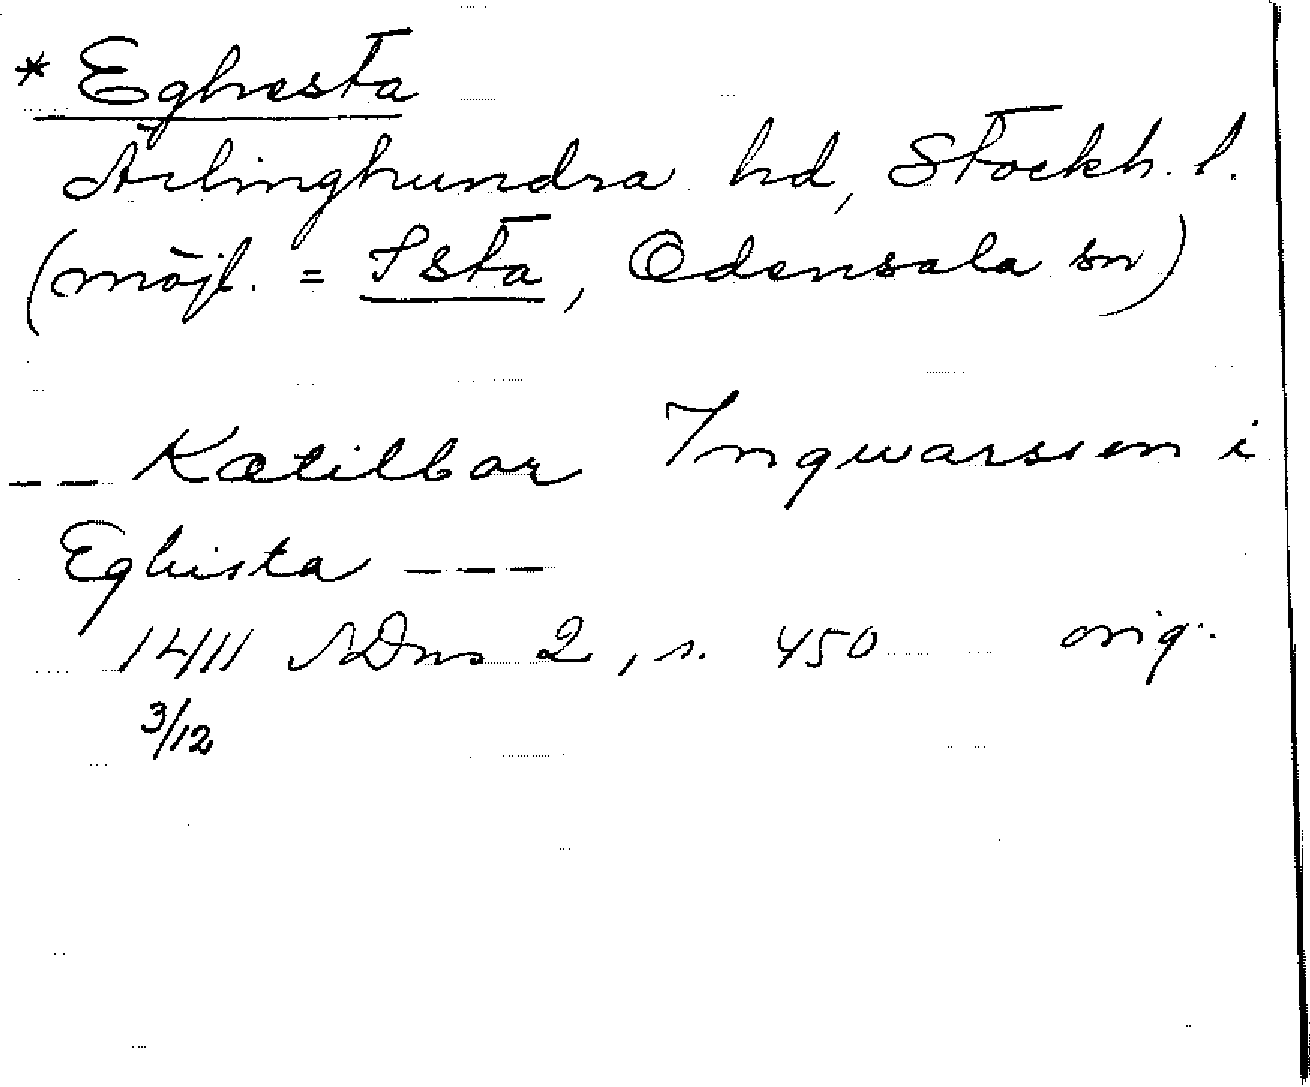 * Eghesta
Ärlinghundra hd, Stockh. l.
(möjl. = Ista, Odensala sn)
-- Kætilbar Ingwarsson i
Eghista ---
1411 SDns 2, s. 450 orig.
3/12